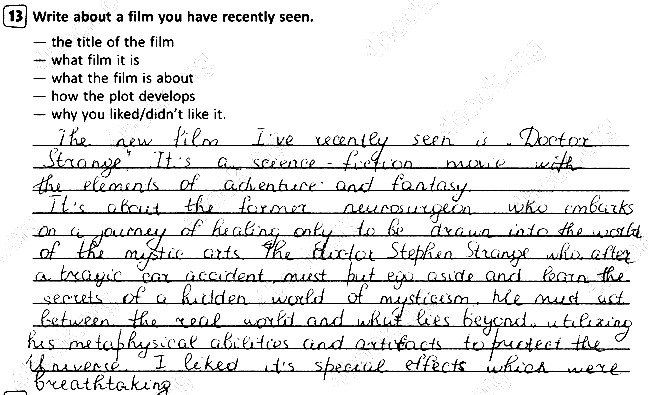 13 Write about a film you have recently seen.
— the title of the film
— what film it is
— what the film is about
— how the plot develops
— why you liked/didn't like it.
The new film I've recently seen is „Doctor
Strange". It's a science-fiction movie with
the elements of adventure and fantasy.
It's about the former neurosurgeon who embarks
on a journey of healing only to be drawn into the world
of the mystic arts. The doctor Stephen Strange who, after
a tragic car accident, must put ego aside and learn the
secrets of a hidden world of mysticism. He must act
between the real world and what lies beyond, utilizing
his metaphysical abilities and artifacts to protect the
Universe. I liked it's special effects which were
breathtaking